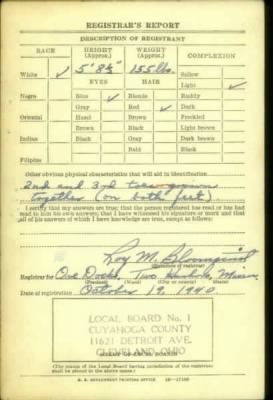 REGISTRAR'S REPORT
DESCRIPTION OF REGISTRANT
RACE HEIGHT (Approx.) WEIGHT (Approx.) COMPLEXION
White ✓ 5' 8½" 155 lbs. Sallow
EYES HAIR Light ✓
Negro Blue ✓ Blonde Ruddy
Gray Red ✓ Dark
Oriental Hazel Brown Freckled
Brown Black Light brown
Indian Black Gray Dark brown
Bald Black
Filipino
Other obvious physical characteristics that will aid in identification
2nd and 3rd toes grown
together (on both feet)
I certify that my answers are true; that the person registered has read or has had
read to him his own answers; that I have witnessed his signature or mark and that
all of his answers of which I have knowledge are true, except as follows:
Roy M. Bloomquist
(Signature of registrar)
Registrar for Ore Docks, Two Harbors, Minn.
(Precinct) (Ward) (City or county) (State)
Date of registration October 19, 1940
LOCAL BOARD No. 1
CUYAHOGA COUNTY
11621 DETROIT AVE.
CLEVELAND OHIO
(STAMP OF LOCAL BOARD)
(The stamp of the Local Board having jurisdiction of the registrant
shall be placed in the above space.)
U. S. GOVERNMENT PRINTING OFFICE 16—17105